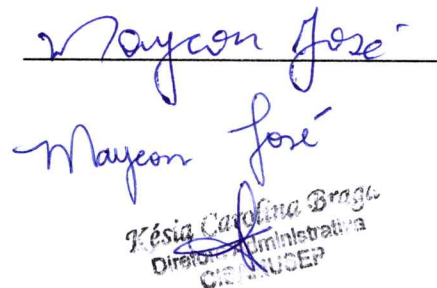 Maycon José
Maycon José
Késia Carolina Braga
Diretora Administrativa